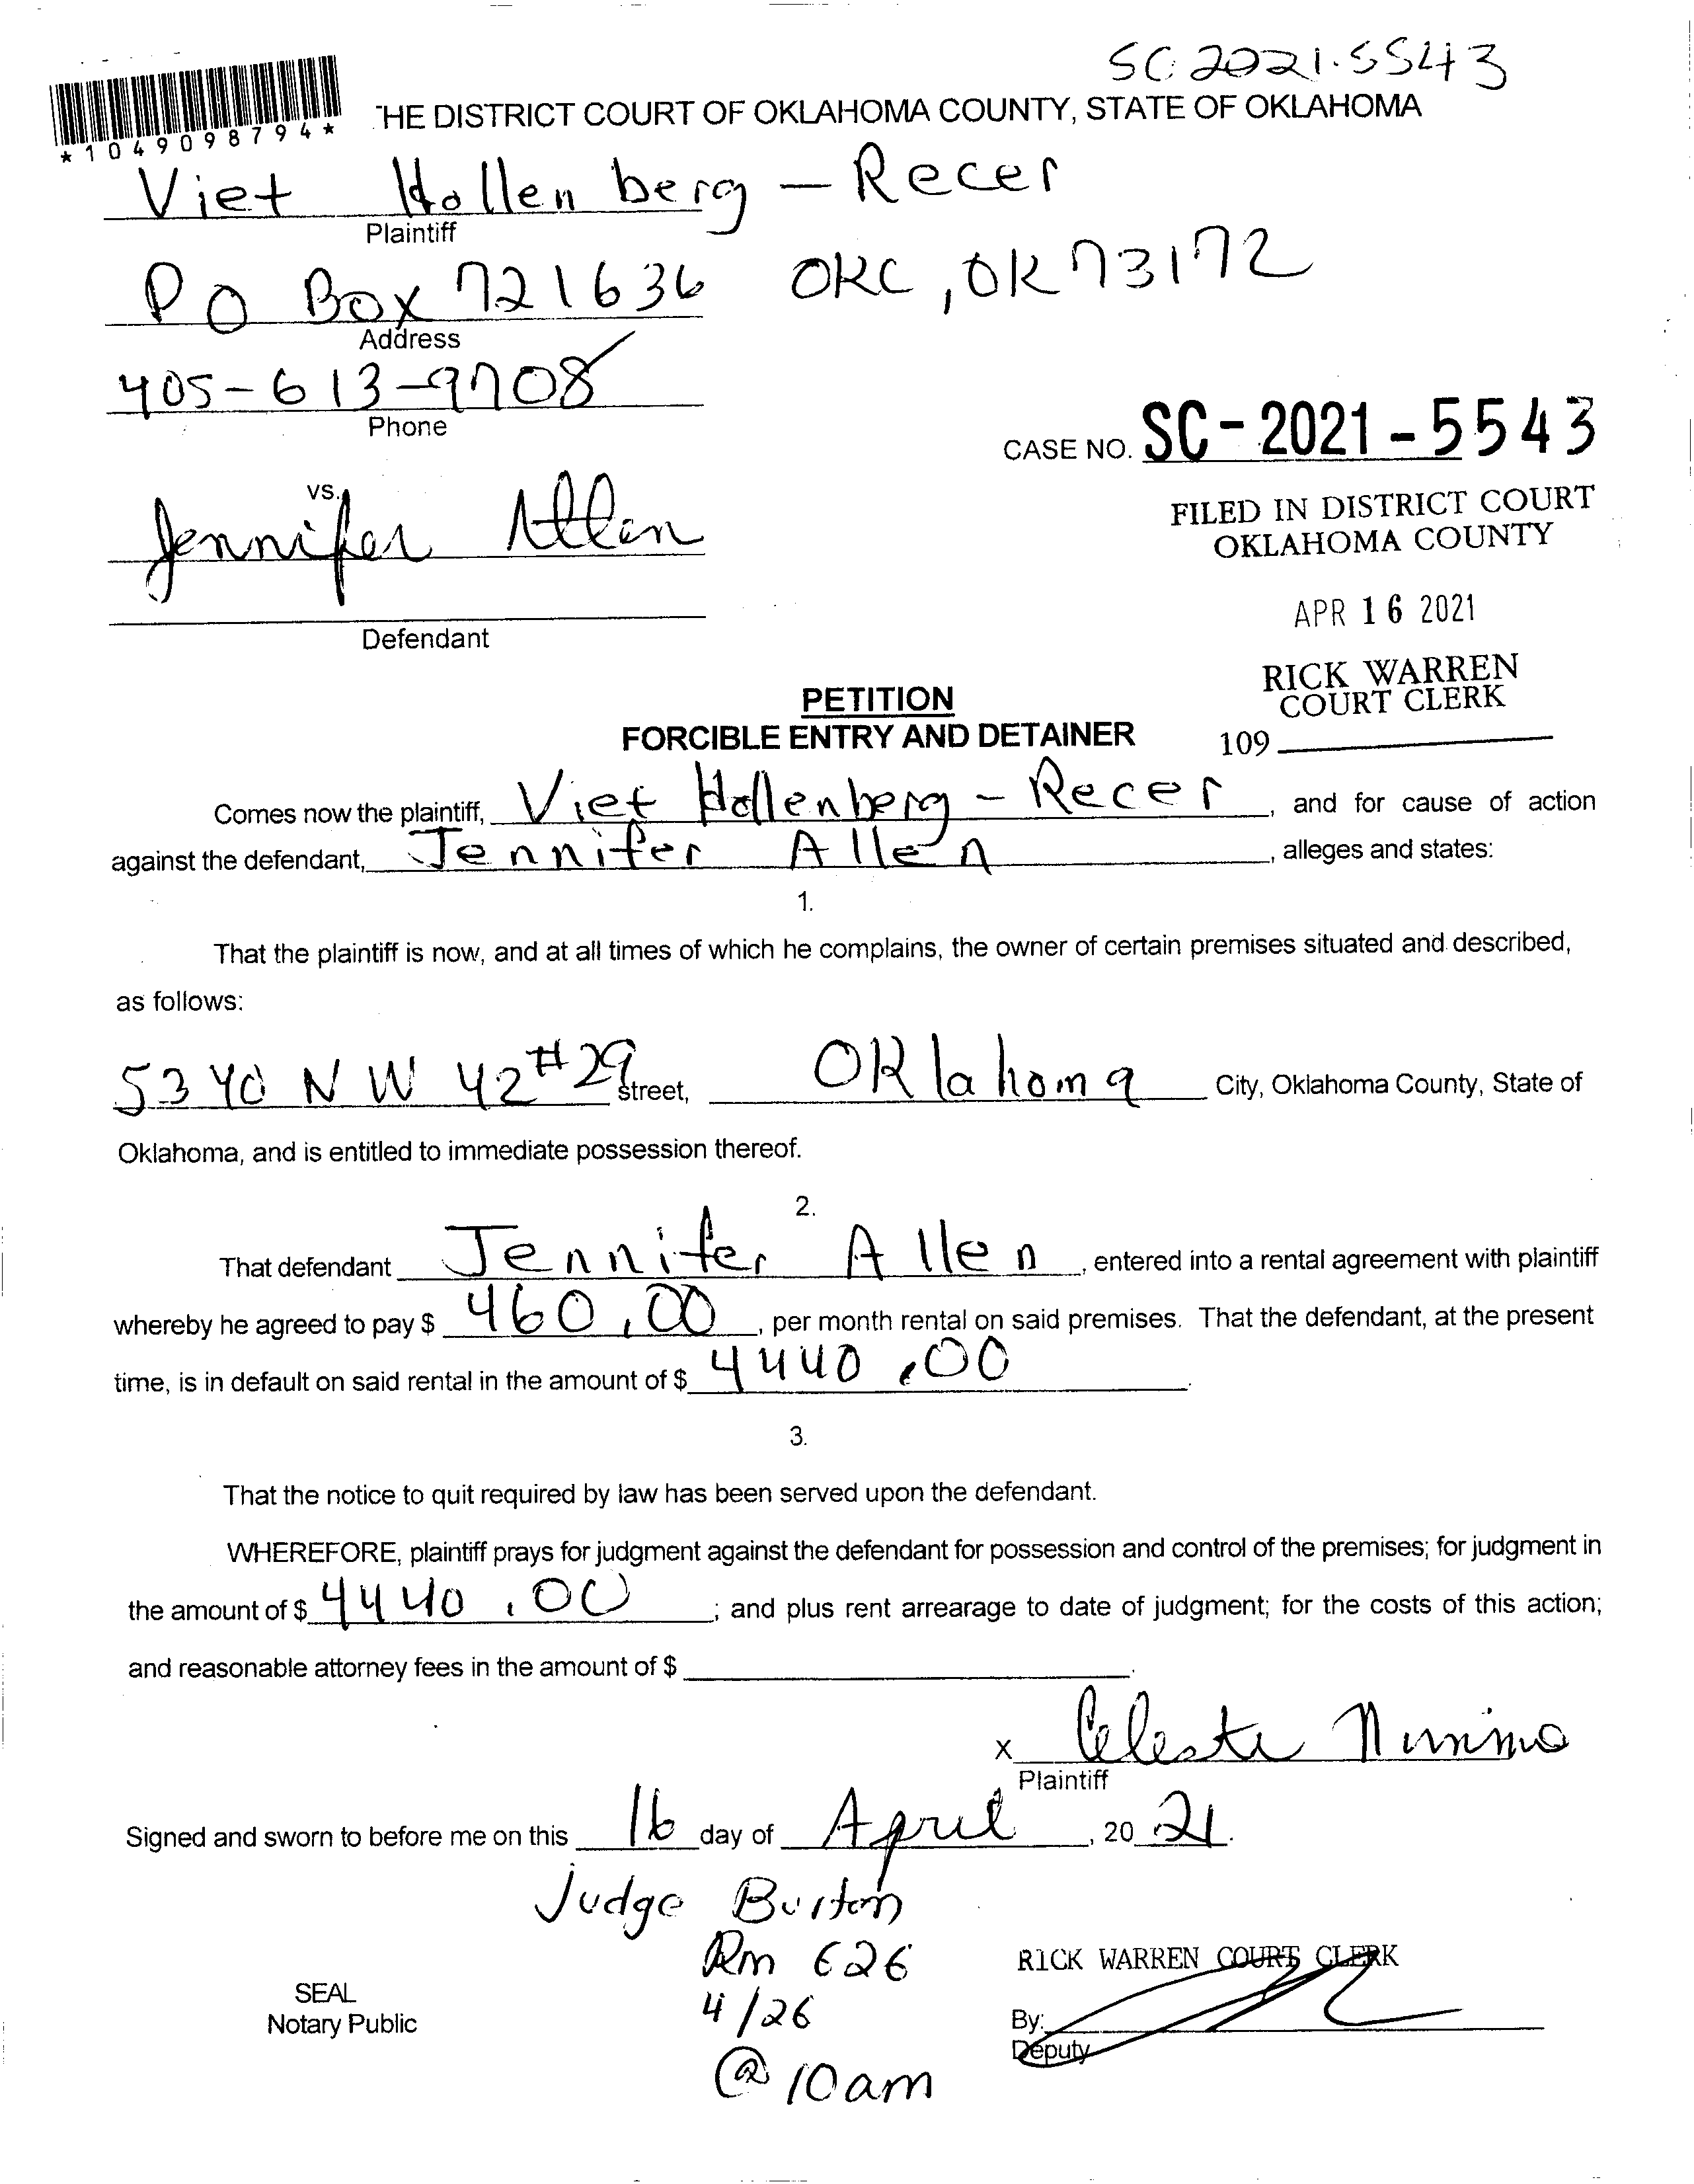 SC 2021-5543
*1049098794*
THE DISTRICT COURT OF OKLAHOMA COUNTY, STATE OF OKLAHOMA
Viet Hollenberg - Recer
Plaintiff
PO Box 721636 OKC, OK 73172
Address
405-613-9708
Phone
CASE NO. SC-2021-5543
vs.
Jennifer Allen
FILED IN DISTRICT COURT
OKLAHOMA COUNTY
APR 16 2021
Defendant
RICK WARREN
COURT CLERK
109
PETITION
FORCIBLE ENTRY AND DETAINER
Comes now the plaintiff, Viet Hollenberg - Recer, and for cause of action
against the defendant, Jennifer Allen, alleges and states:
1.
That the plaintiff is now, and at all times of which he complains, the owner of certain premises situated and described,
as follows:
5340 NW 42 #29 street, Oklahoma City, Oklahoma County, State of
Oklahoma, and is entitled to immediate possession thereof.
2.
That defendant Jennifer Allen, entered into a rental agreement with plaintiff
whereby he agreed to pay $ 460.00, per month rental on said premises. That the defendant, at the present
time, is in default on said rental in the amount of $ 4440.00.
3.
That the notice to quit required by law has been served upon the defendant.
WHEREFORE, plaintiff prays for judgment against the defendant for possession and control of the premises; for judgment in
the amount of $ 4440.00; and plus rent arrearage to date of judgment; for the costs of this action;
and reasonable attorney fees in the amount of $ .
x Celeste Nimmo
Plaintiff
Signed and sworn to before me on this 16 day of April, 20 21.
Judge Burton
Rm 626
4/26
@ 10am
SEAL
Notary Public
RICK WARREN COURT CLERK
By:
Deputy